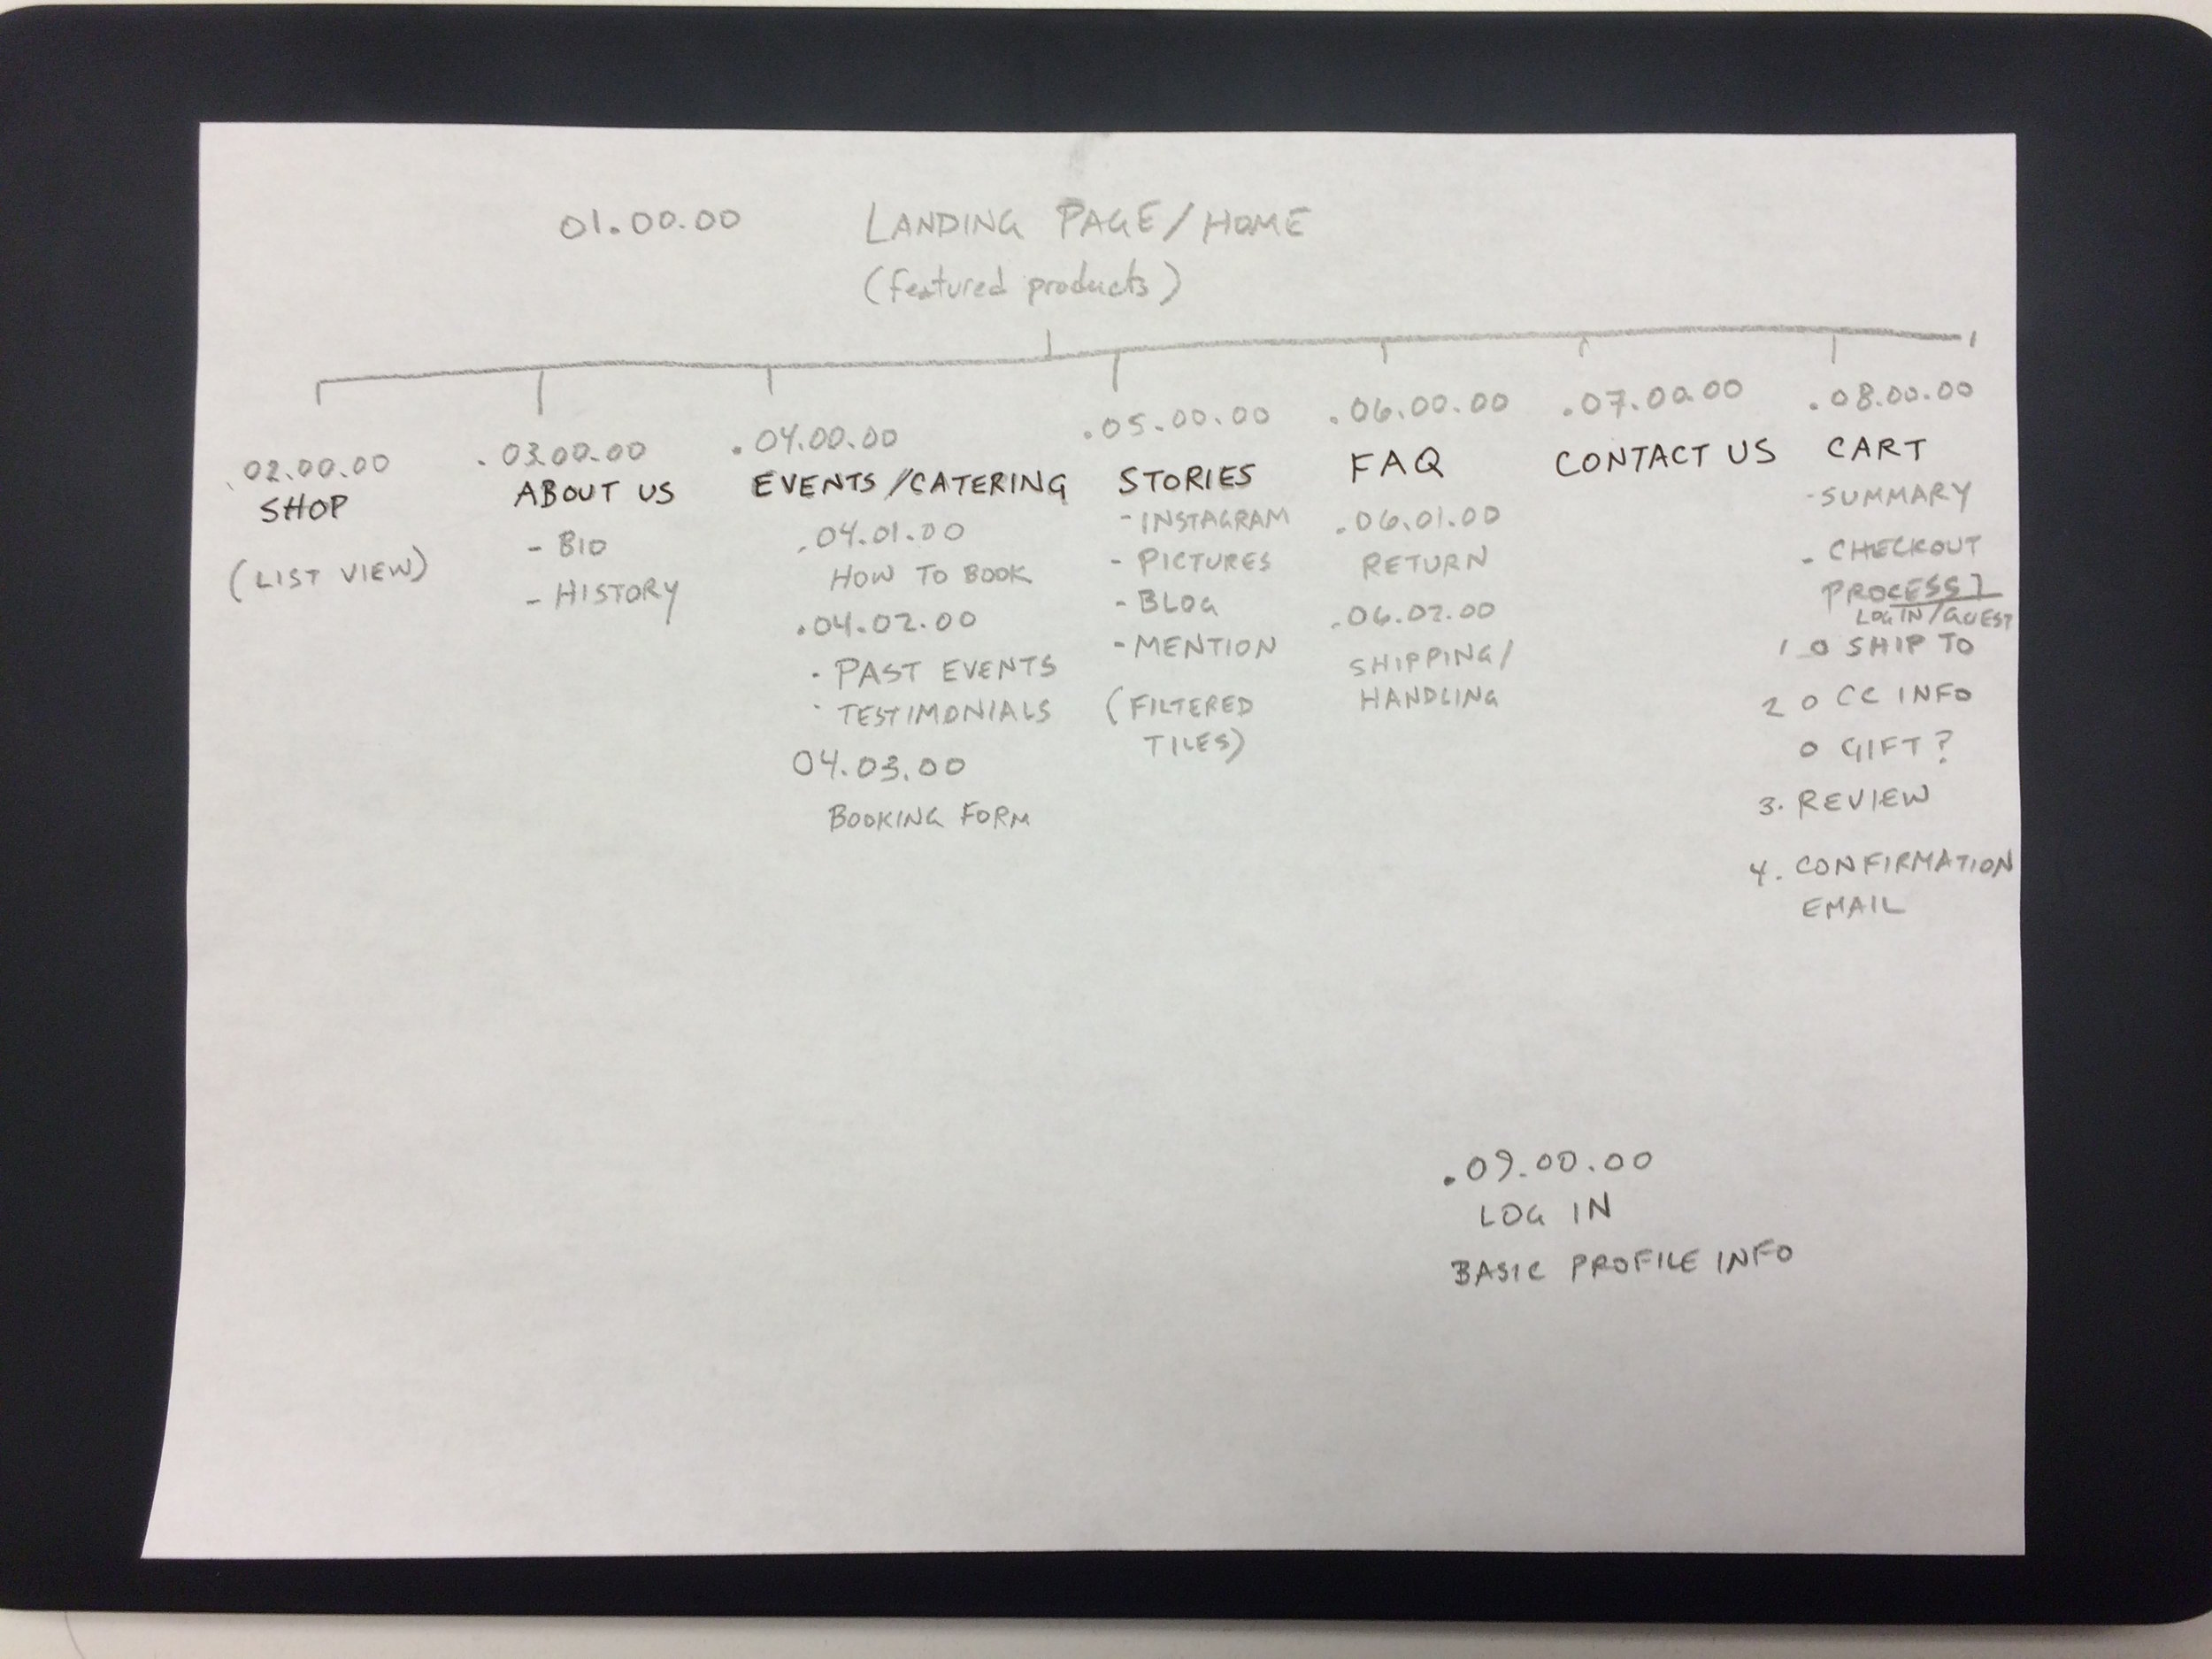 01.00.00 LANDING PAGE/HOME
(featured products)
.02.00.00
SHOP
(LIST VIEW)
.03.00.00
ABOUT US
- BIO
- HISTORY
.04.00.00
EVENTS/CATERING
.04.01.00
HOW TO BOOK
.04.02.00
- PAST EVENTS
- TESTIMONIALS
04.03.00
BOOKING FORM
.05.00.00
STORIES
- INSTAGRAM
- PICTURES
- BLOG
- MENTION
(FILTERED
TILES)
.06.00.00
FAQ
.06.01.00
RETURN
.06.02.00
SHIPPING/
HANDLING
.07.00.00
CONTACT US
.08.00.00
CART
- SUMMARY
- CHECKOUT
PROCESS]
LOG IN/GUEST
1 o SHIP TO
2 o CC INFO
o GIFT?
3. REVIEW
4. CONFIRMATION
EMAIL
.09.00.00
LOG IN
BASIC PROFILE INFO